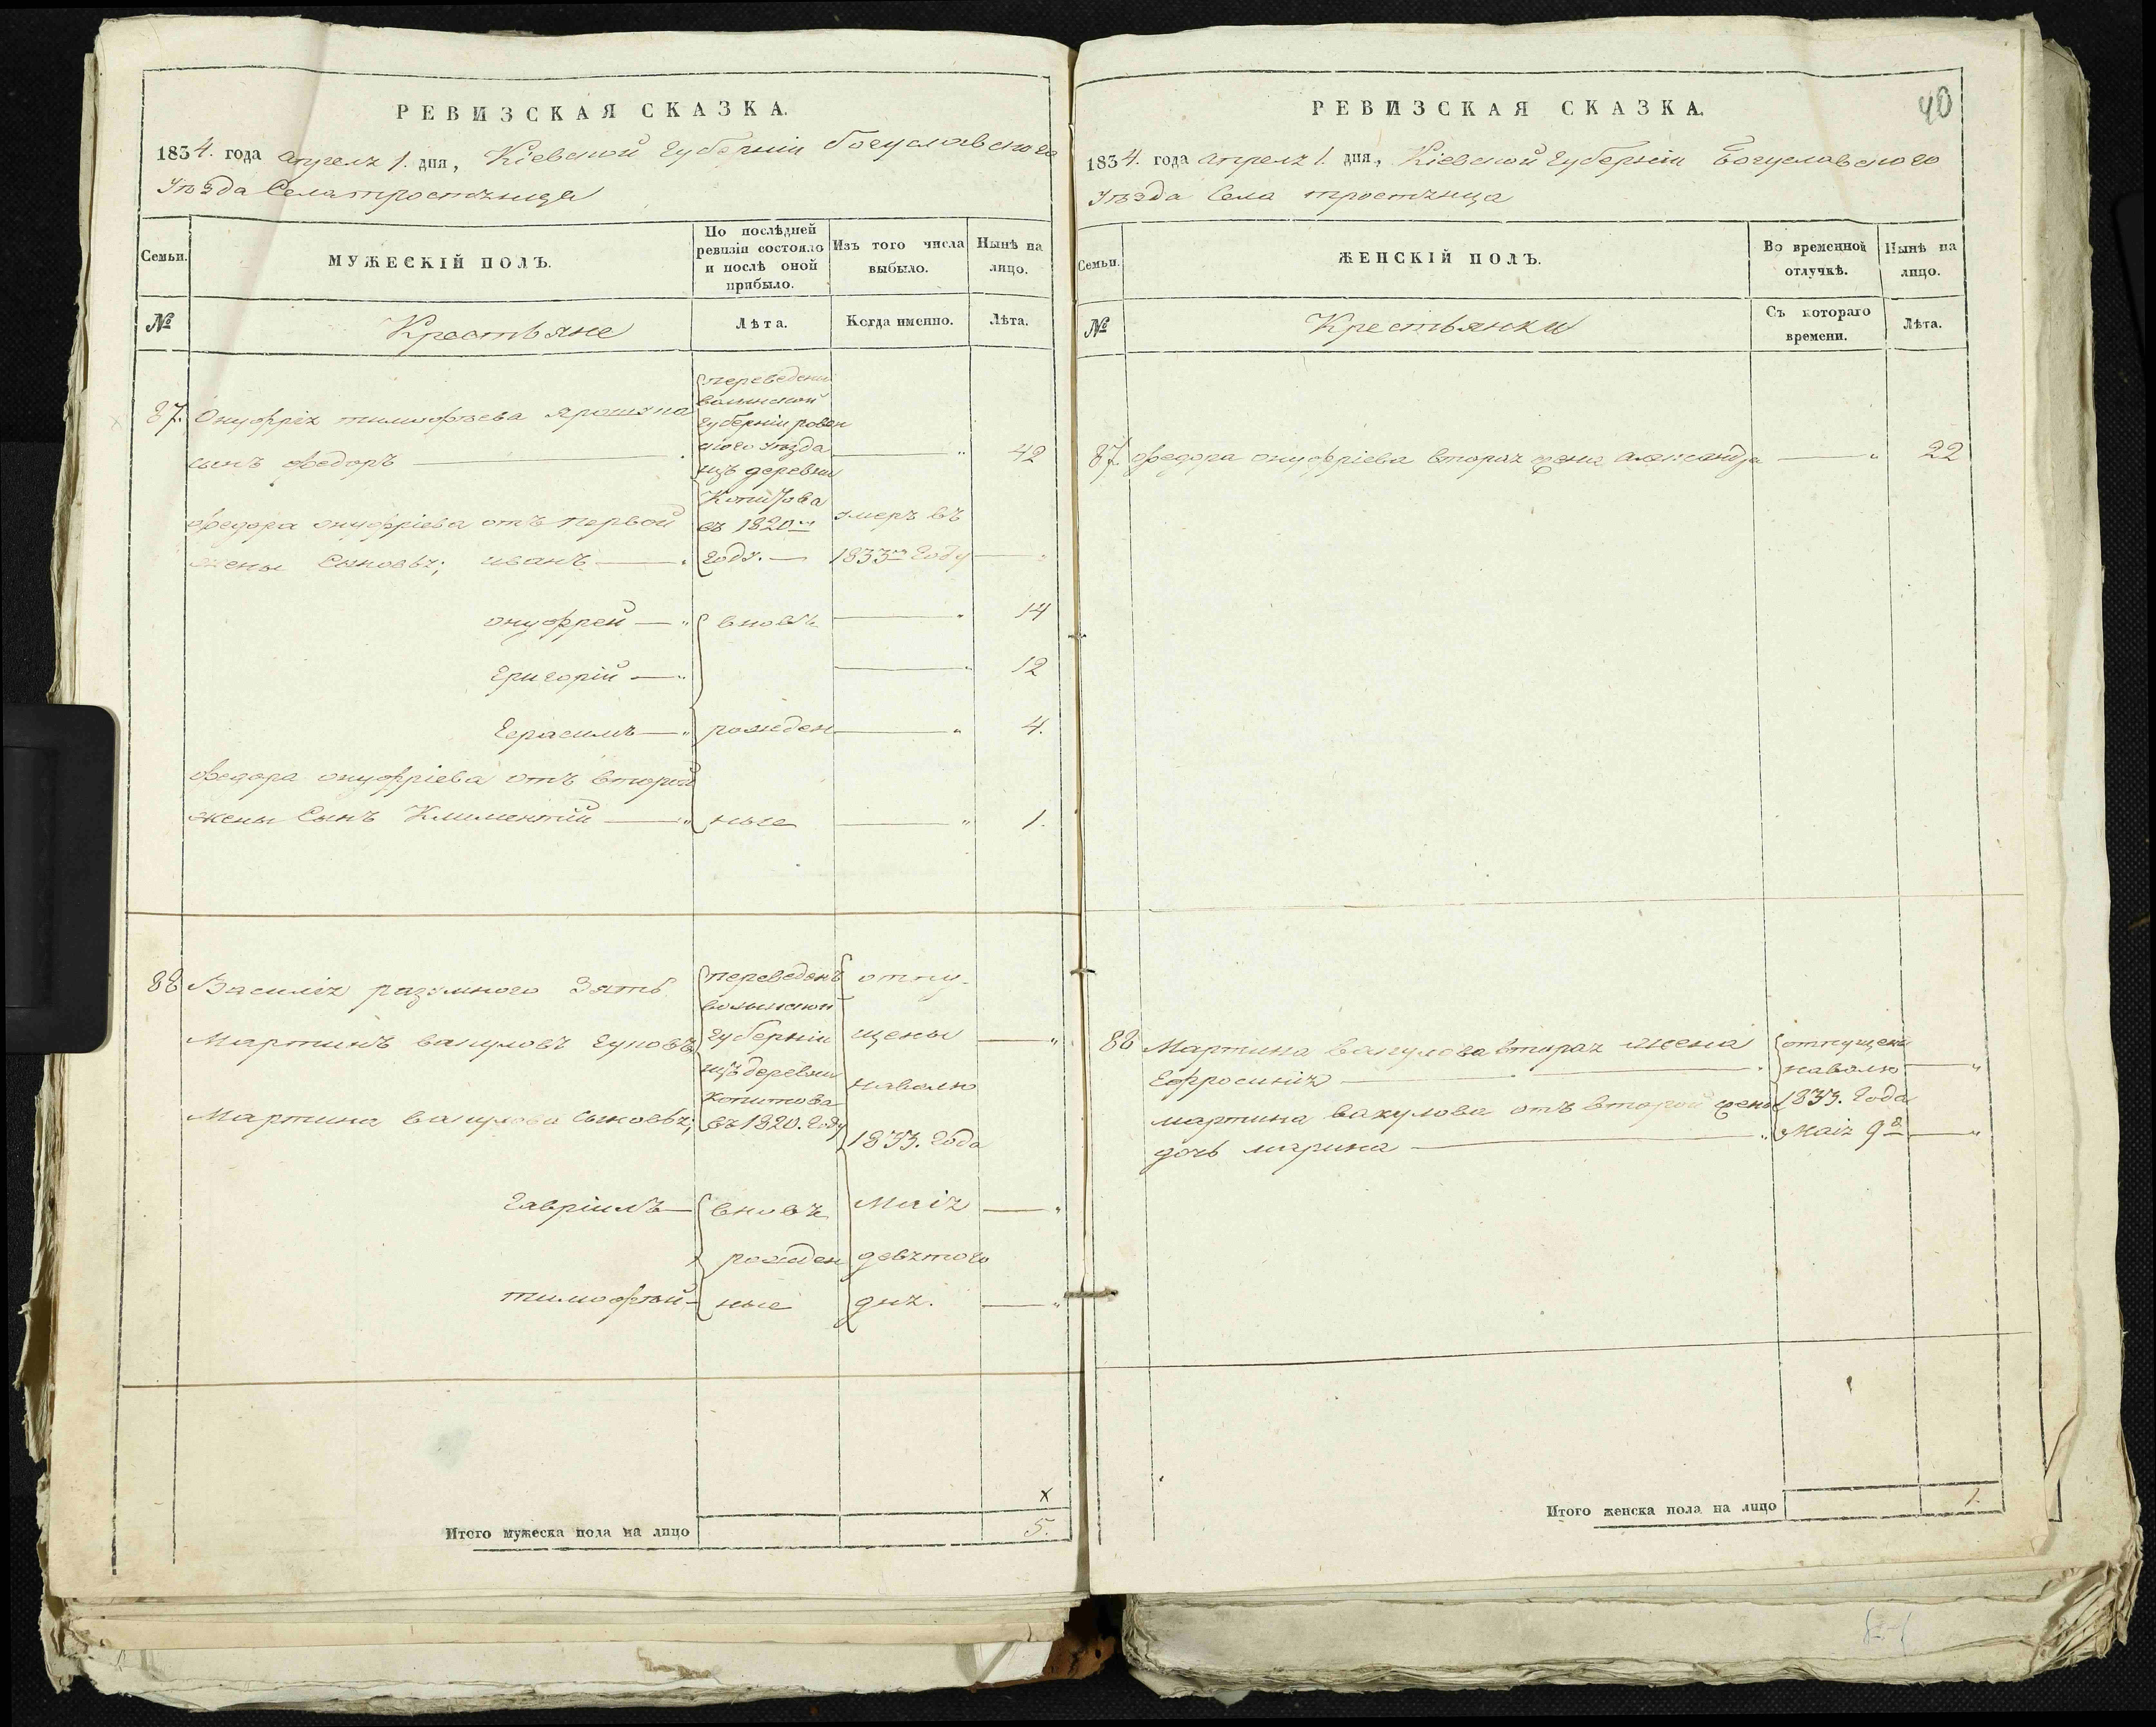 РЕВИЗСКАЯ СКАЗКА.
1834. года апреля 1. дня, Кіевской Губерніи богуславского
Уѣзда Села тростянца
Семьи.
МУЖЕСКІЙ ПОЛЪ.
По послѣдней ревизіи состояло и послѣ оной прибыло.
Изъ того числа выбыло.
Нынѣ на лицо.
№
Крестьяне
Лѣта.
Когда именно.
Лѣта.
87. Онуфрія тимофѣева
сынъ федоръ — 42
переведены
волынской
Губерніи ровен
ского уѣзда
изъ деревни
въ 1820м
году. —
федора онуфріева отъ первой
жены Сыновья; иванъ —
умеръ въ
1833м Году —
онуфрей — вновь — 14
Григорій — 12
Герасимъ — рожден — 4.
федора онуфріева отъ второй
жены Сынъ Климентій — ные — 1.
88 Василія разумного Зять
Мартинъ вакуловъ
переведенъ
волынской
Губерніи
изъ деревни
копитова
въ 1820. Году
отпу-
щены
наволю
1833. Года
Маія
девятого
дня.
Мартина вакулова Сыновья;
Гавріилъ — вновь
рожден
тимофѣй — ные
х
Итого мужеска пола на лицо 5.
РЕВИЗСКАЯ СКАЗКА.
40
1834. года апреля 1. дня, Кіевской Губерніи Богуславского
Уѣзда Села тростянца
Семьи.
ЖЕНСКІЙ ПОЛЪ.
Во временной отлучкѣ.
Нынѣ на лицо.
№
Крестьянки
Съ котораго времени.
Лѣта.
87. федора онуфріева вторая жена александра — 22
88 Мартина вакулова вторая жена
Ефросинія —
мартина вакулова отъ второй жены
дочь марина —
отпущены
наволю
1833. Года
Маія 9д
Итого женска пола на лицо 1.